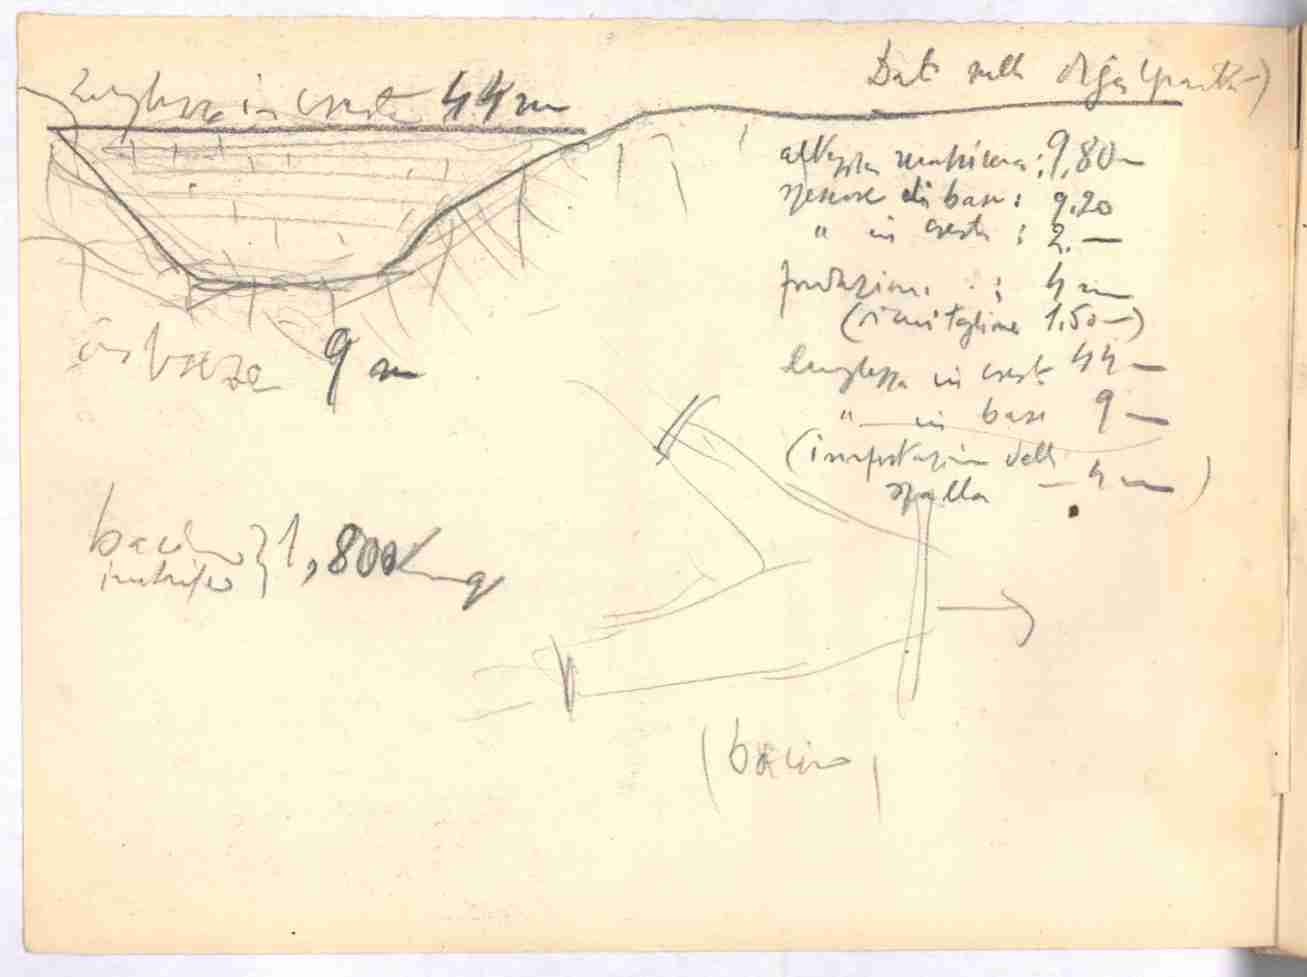 lunghezza in cresta 44 m
Dati sulla diga
altezza massima: 9,80 m
spessore di base: 9.20
" in cresta: 2.—
fondazione: 4 m
lunghezza in cresta 44 m
" in base 9 m
(impostazione della
spalla — 4 m)
in base 9 m
bacino } 1,800 Kmq
imbrifero
(bacino)